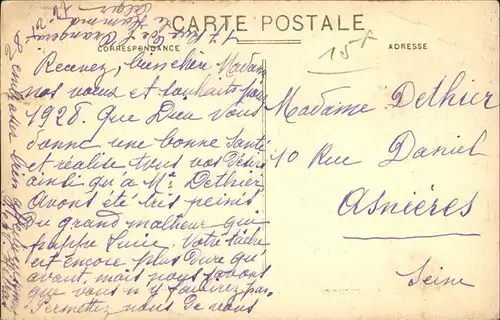 CARTE POSTALE
CORRESPONDANCE
ADRESSE
15f
Recevez, bien chère Madame
nos vœux et souhaits pour
1928. Que Dieu vous
donne une bonne santé
et réalise tous vos désirs
ainsi qu'à Mr Dethier
Avons été très peinés
du grand malheur qui
frappe Lucie. Votre tâche
est encore plus dure qu'
avant, mais nous savons
que vous n'y faillirez pas.
Permettez nous de vous
Madame Dethier
10 Rue Daniel
Asnières
Seine